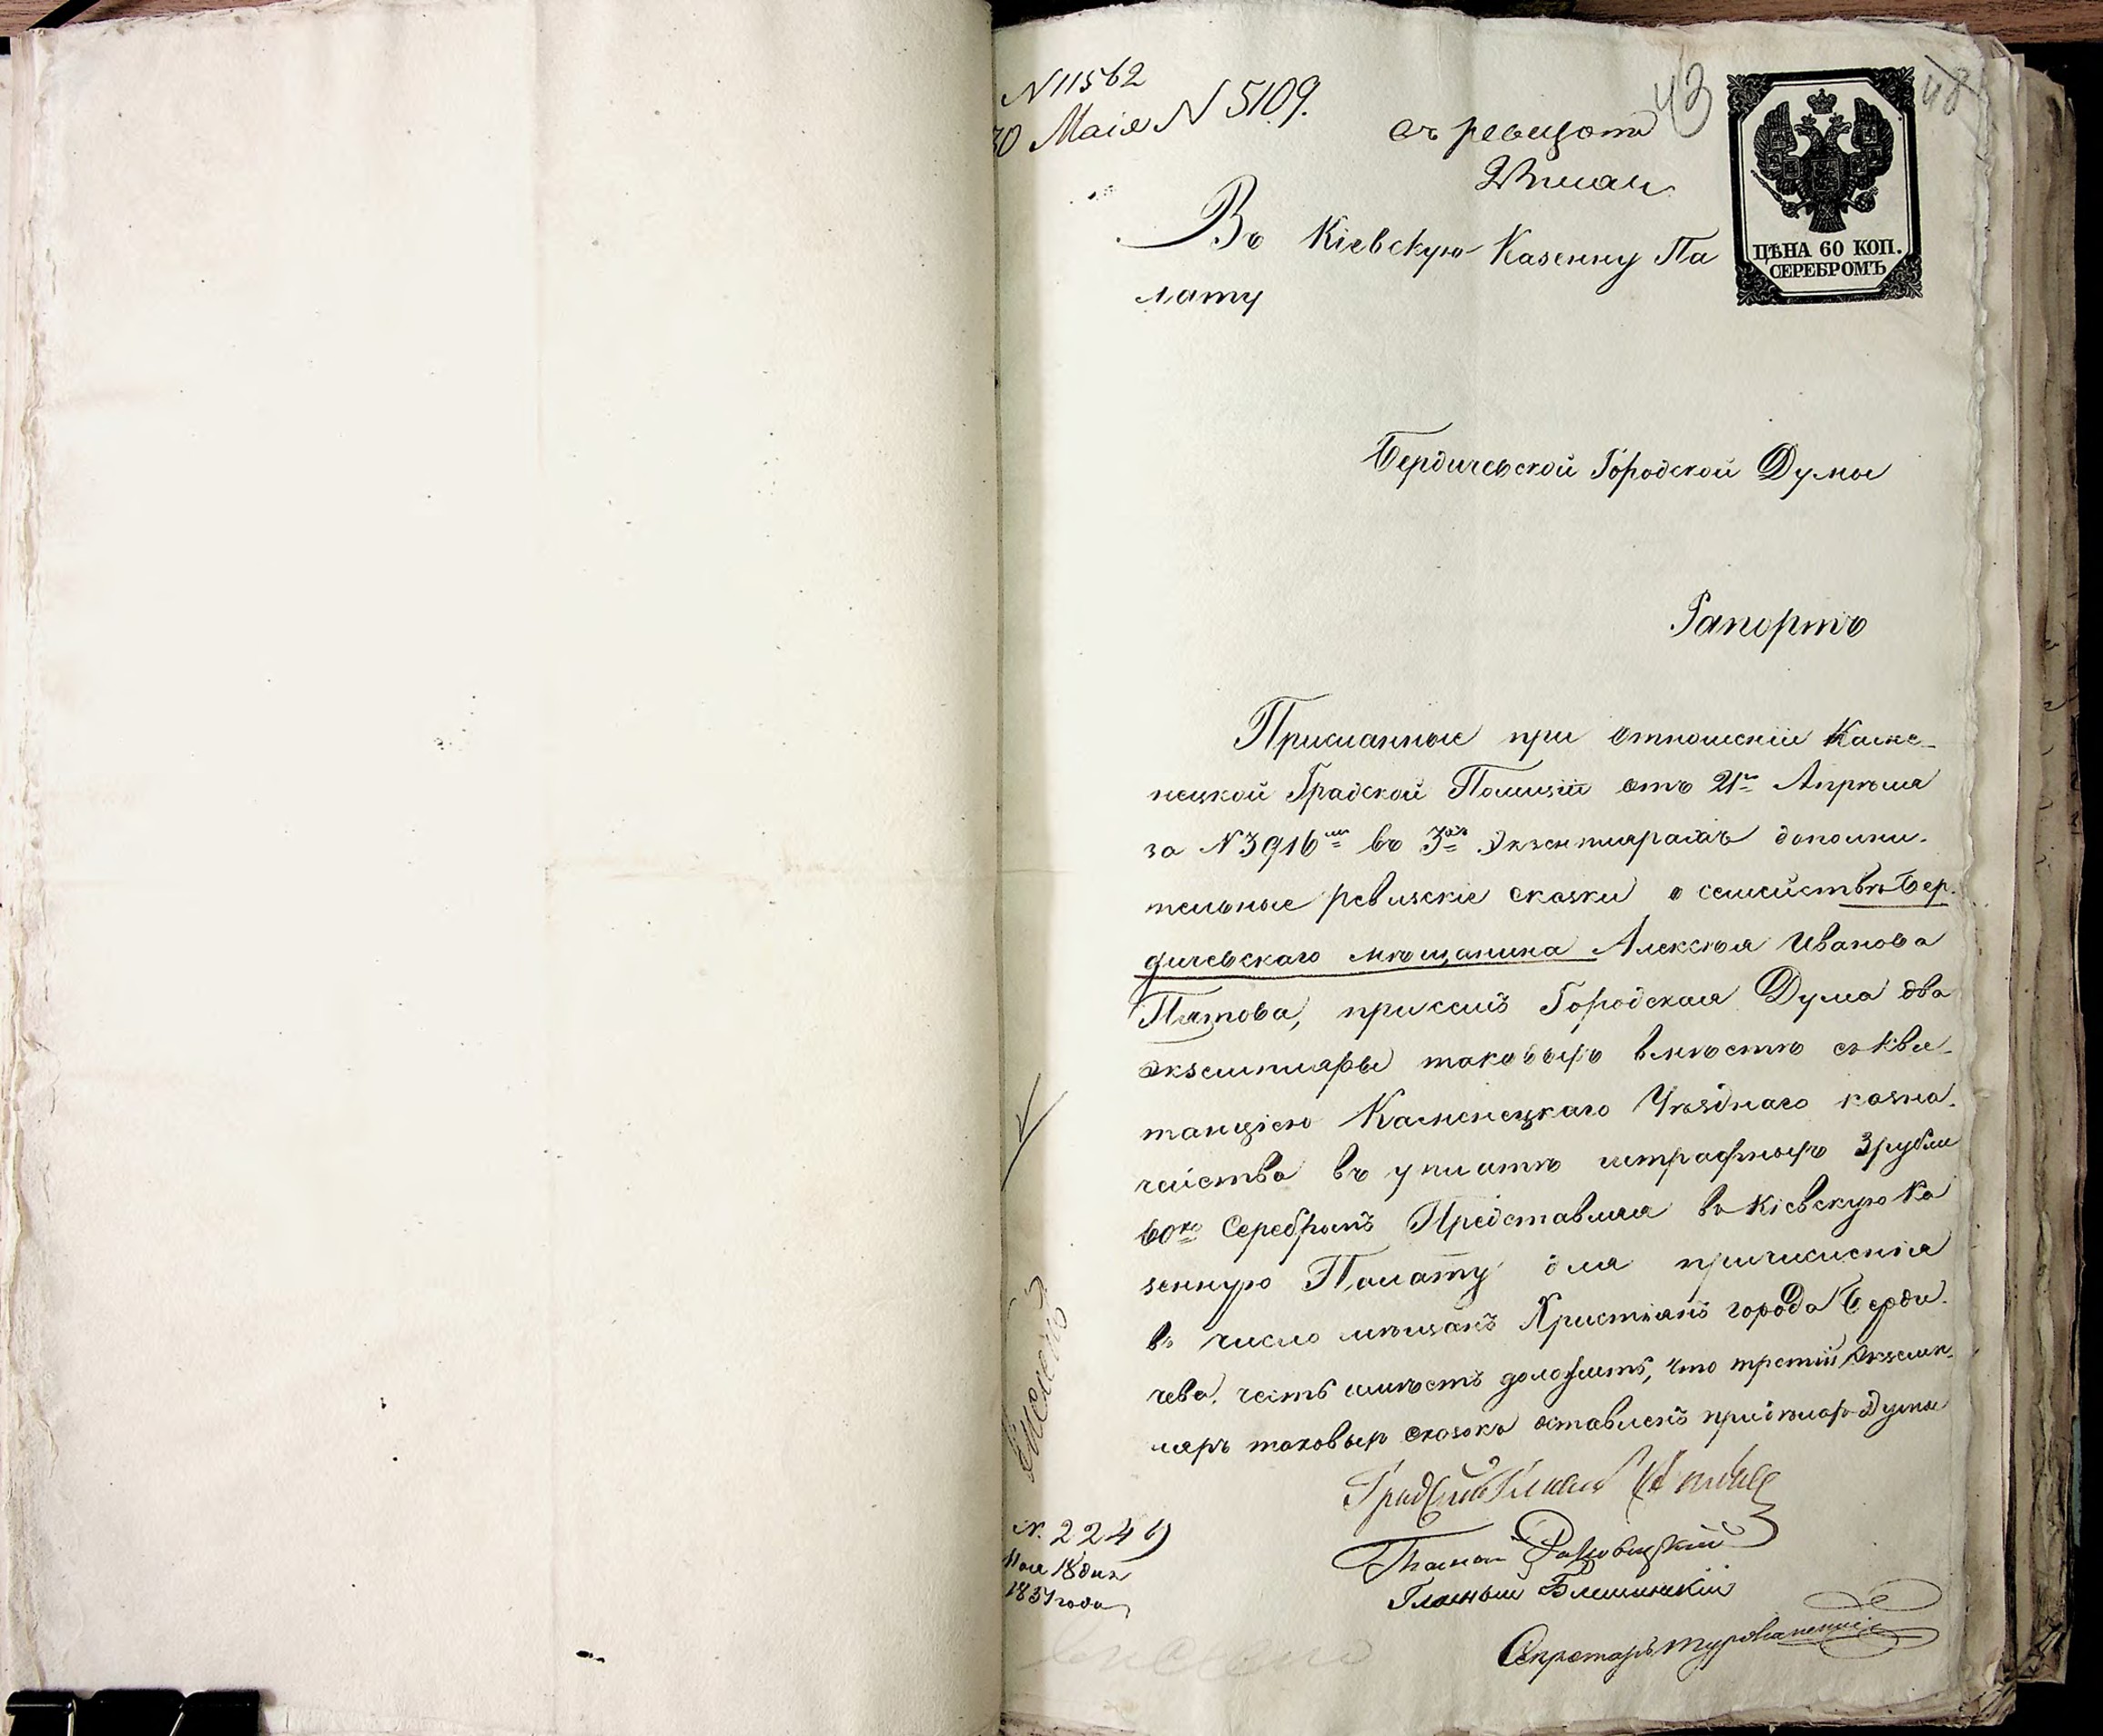 N 11562
30 Маія N 5109.
43
48
ЦѢНА 60 КОП.
СЕРЕБРОМЪ
Въ Кіевскую Казенну Па
лату
Бердичевской Городской Думы
Рапортъ
Присланные при отношеніи Камѣ-
нецкой Градской Полиціи отъ 21го Апрѣля
за N 3916мъ въ 3хъ Экземплярахъ дополни-
тельные ревизскіе сказки о семействѣ Бер-
дичевскаго мѣщанина Алексѣя Иванова
Пятова, при семъ Городская Дума два
экземпляры таковыхъ вмѣстѣ съ кви-
танціею Каменецкаго Уѣзднаго казна-
чейства въ уплатѣ штрафныхъ 3 рубли
60 ко Серебромъ Представляя въ Кіевскую Ка
зенную Палату для причисленія
въ число мѣщанъ Христіанъ города Берди-
чева, честь имѣетъ доложить, что третій Экземп-
ляръ таковыхъ сказокъ оставленъ при дѣлахъ Думы
Градскій Глава
Гласный
Гласный
Секретарь
N. 2249
Мая 18 дня
1851 года